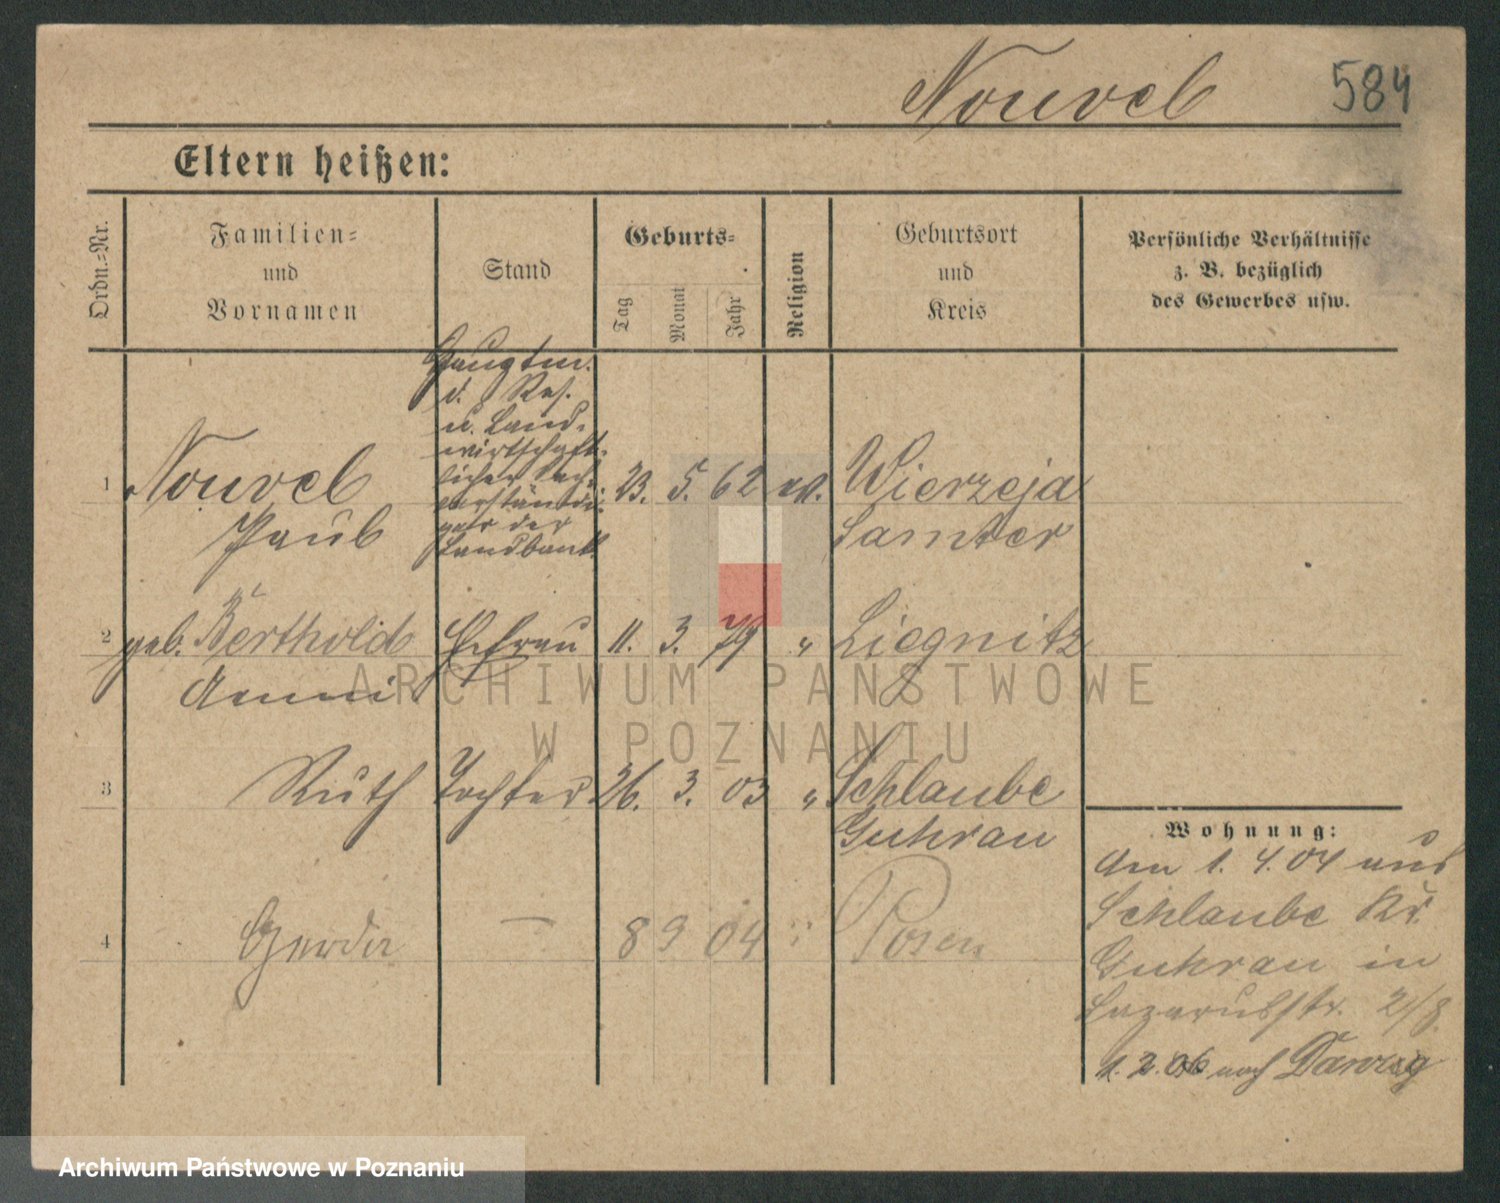 Nouvel 584
Eltern heißen:
Ordn.-Nr.
Familien-
und
Vornamen
Stand
Geburts-
Tag
Monat
Jahr
Religion
Geburtsort
und
Kreis
Persönliche Verhältnisse
z. B. bezüglich
des Gewerbes usw.
Hauptm.
d. Res.
u. Land-
wirtschaft-
licher Sach-
verständi-
ger der
Landbank
1 Nouvel 23. 5. 62 ev. Wierzeja
Paul Samter
2 geb. Berthold Ehefrau 11. 3. 79 " Liegnitz
Aenni
3 Ruth Tochter 26. 3. 03 " Schlaube
Guhrau
4 Gerda — 8 9 04 " Posen
Wohnung:
Am 1. 4. 04 aus
Schlaube Kr.
Guhrau in
Lazarusstr.
1. 2. 06 nach Danzig
ARCHIWUM PAŃSTWOWE
W POZNANIU
Archiwum Państwowe w Poznaniu